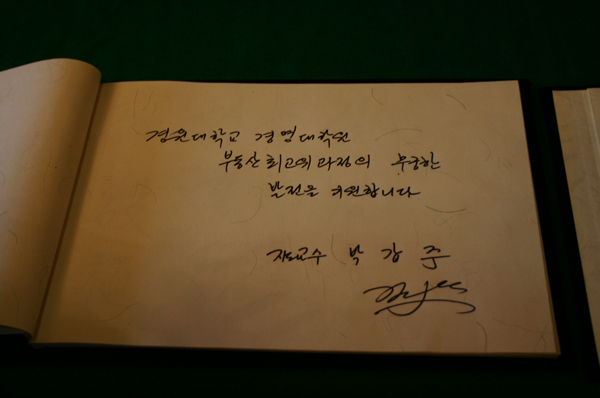 경원대학교 경영대학원
부동산최고위과정의 무궁한
발전을 기원합니다
지도교수 박 갑 준